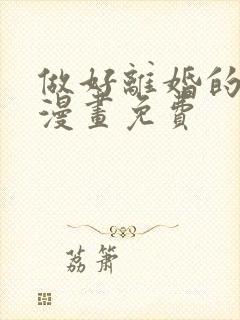 做好離婚的
漫畫免費
荔簫